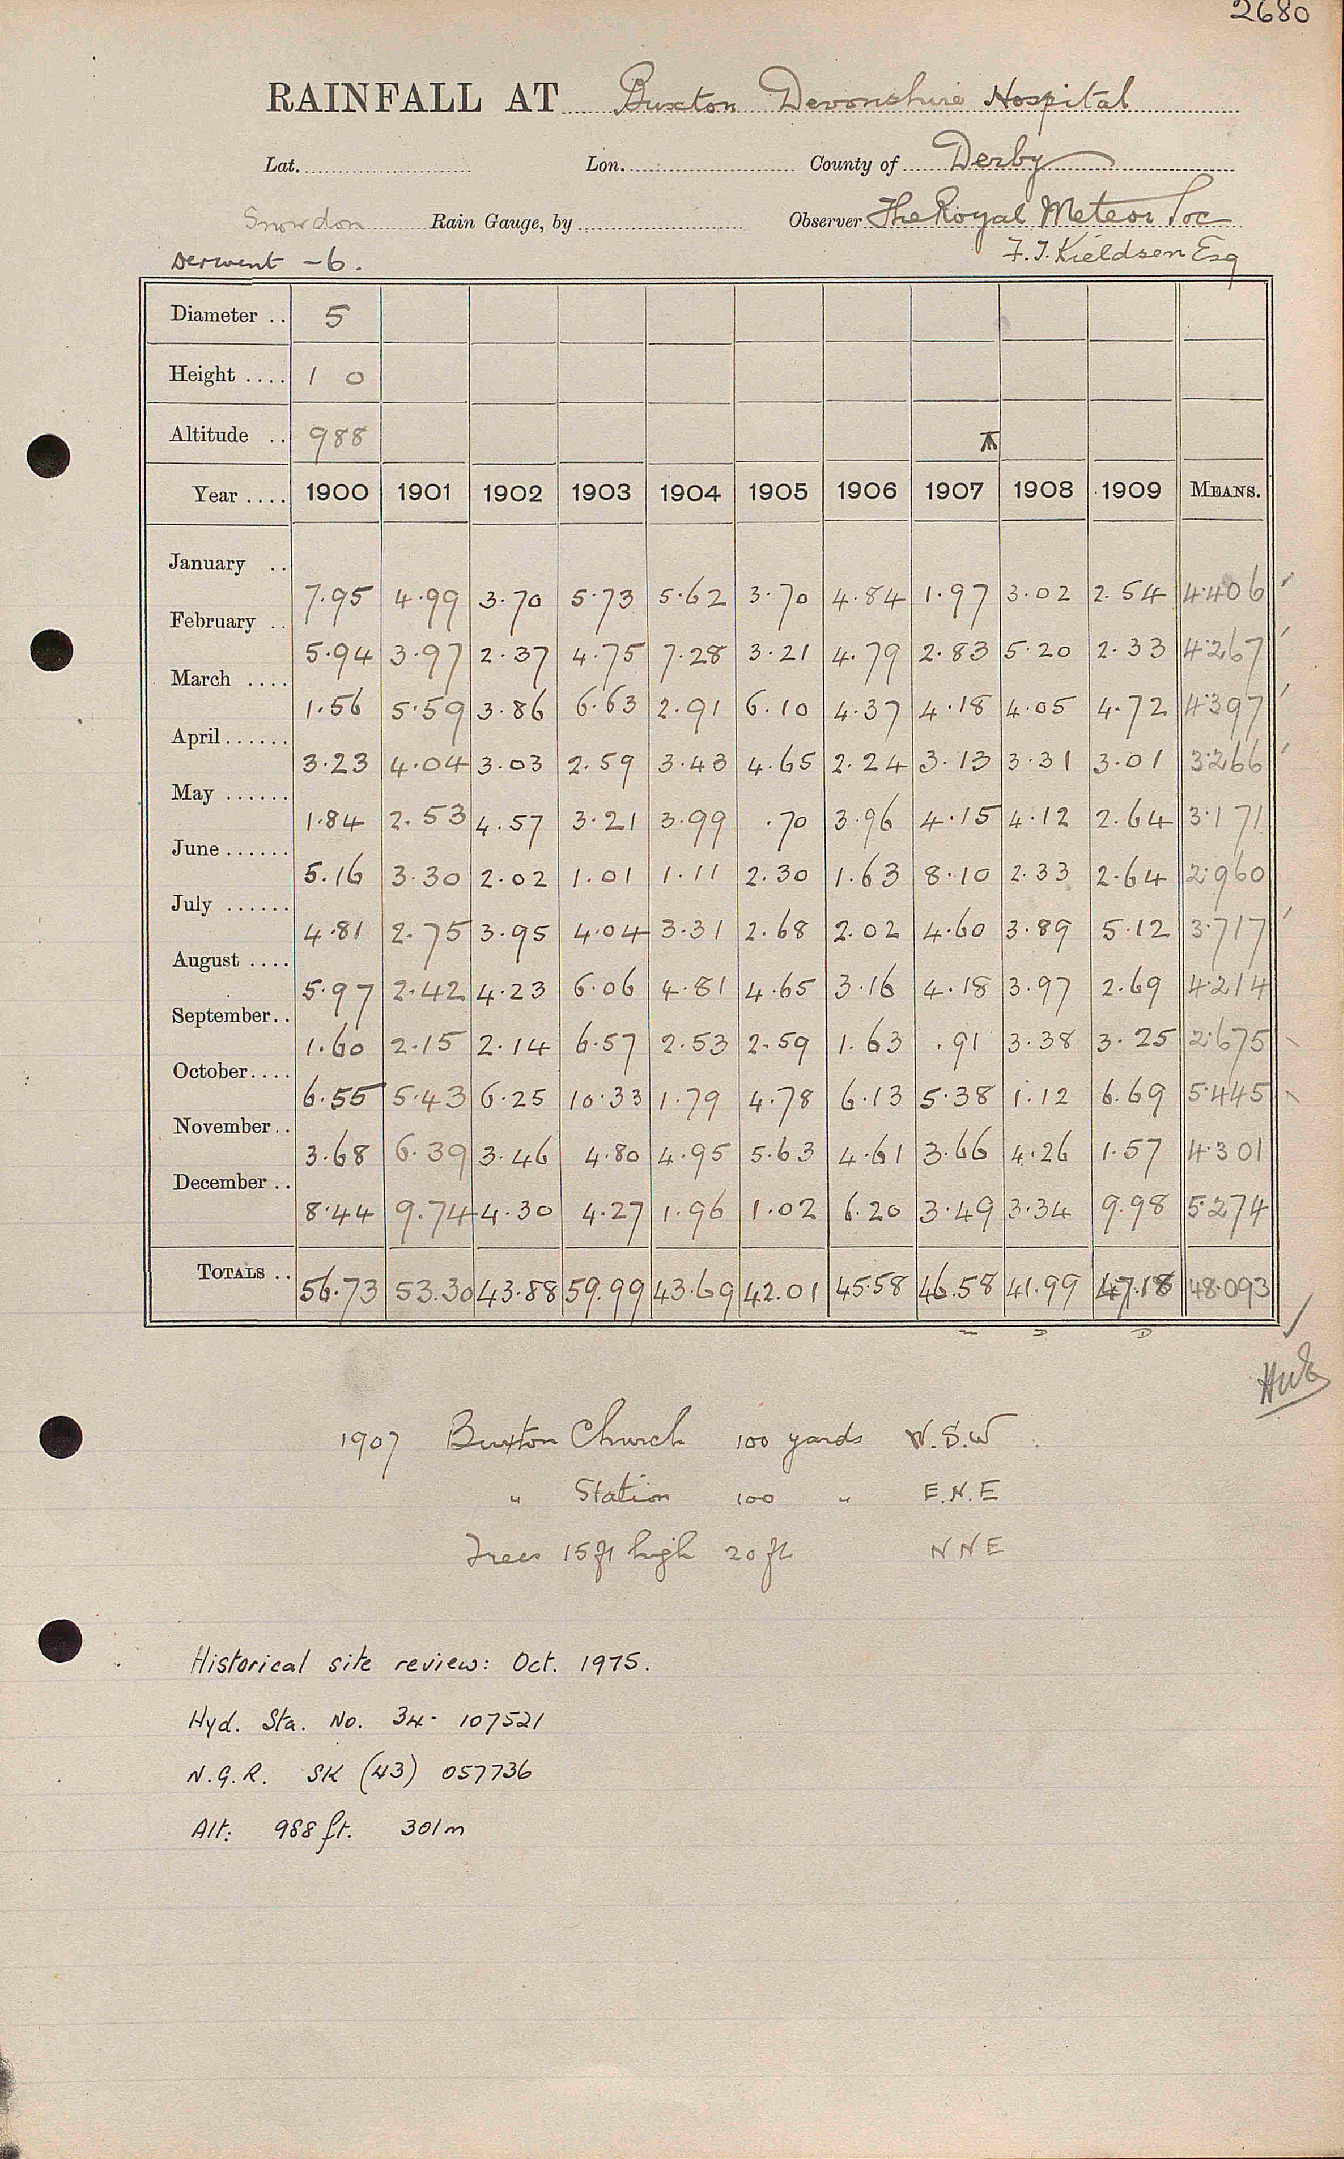 2680
RAINFALL AT Buxton Devonshire Hospital
Lat. Lon. County of Derby
Snowdon Rain Gauge, by Observer The Royal Meteor Soc
Derwent - 6. F. J. Kieldsen Esq
Diameter .. 5
Height .... 1 0
Altitude .. 988
Year .... 1900 1901 1902 1903 1904 1905 1906 1907 1908 1909 MEANS.
January .. 7.95 4.99 3.70 5.73 5.62 3.70 4.84 1.97 3.02 2.54 4.406
February .. 5.94 3.97 2.37 4.75 7.28 3.21 4.79 2.83 5.20 2.33 4.267
March .... 1.56 5.59 3.86 6.63 2.91 6.10 4.37 4.18 4.05 4.72 4.397
April ...... 3.23 4.04 3.03 2.59 3.43 4.65 2.24 3.13 3.31 3.01 3.266
May ...... 1.84 2.53 4.57 3.21 3.99 .70 3.96 4.15 4.12 2.64 3.171
June ...... 5.16 3.30 2.02 1.01 1.11 2.30 1.63 8.10 2.33 2.64 2.960
July ...... 4.81 2.75 3.95 4.04 3.31 2.68 2.02 4.60 3.89 5.12 3.717
August .... 5.97 2.42 4.23 6.06 4.81 4.65 3.16 4.18 3.97 2.69 4.214
September .. 1.60 2.15 2.14 6.57 2.53 2.59 1.63 .91 3.38 3.25 2.675
October .... 6.55 5.43 6.25 10.33 1.79 4.78 6.13 5.38 1.12 6.69 5.445
November .. 3.68 6.39 3.46 4.80 4.95 5.63 4.61 3.66 4.26 1.57 4.301
December .. 8.44 9.74 4.30 4.27 1.96 1.02 6.20 3.49 3.34 9.98 5.274
TOTALS .. 56.73 53.30 43.88 59.99 43.69 42.01 45.58 46.58 41.99 47.18 48.093
1907 Buxton Church 100 yards W.S.W
" Station 100 " E.N.E
Trees 15 ft high 20 ft NNE
Historical site review: Oct. 1975.
Hyd. Sta. No. 34- 107521
N.G.R. SK (43) 057736
Alt: 988 ft. 301m